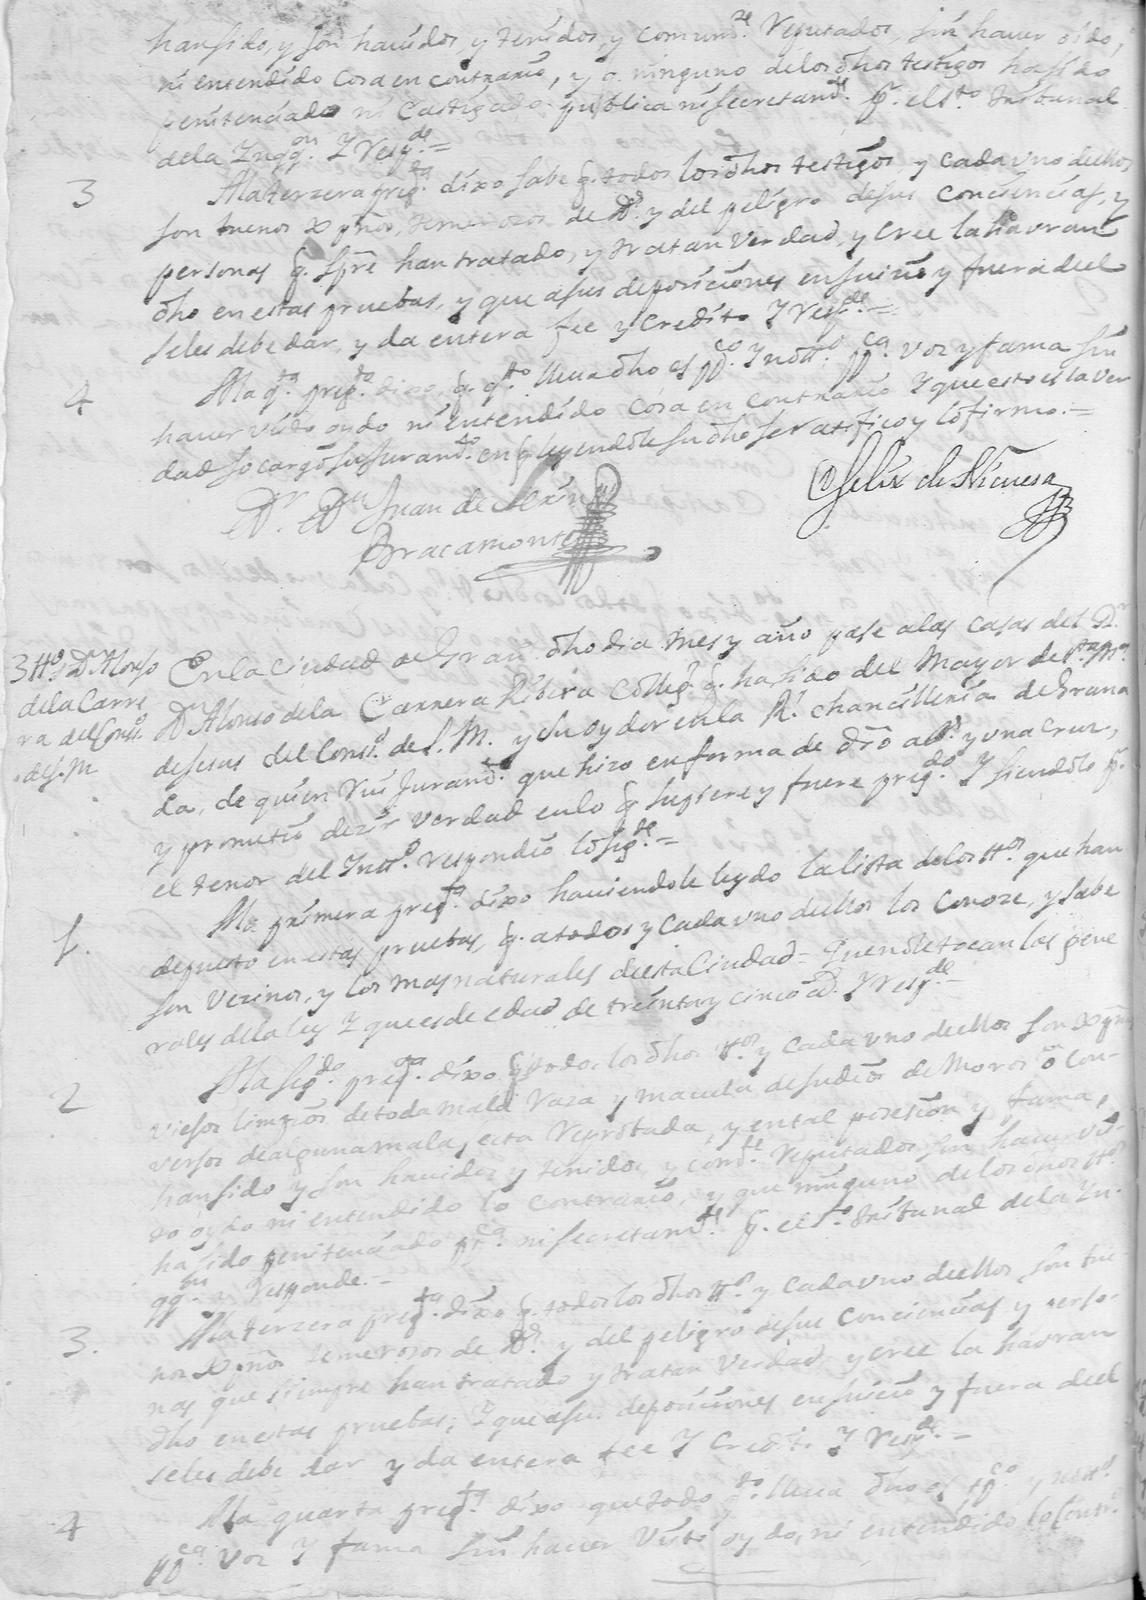 han sido, y son hauidos, y tenidos, y comunmte. Reputados, sin hauer oido,
ni entendido cosa en contrario, y q. ninguno de los dhos testigos ha sido
penitenciado ni Castigado publica ni secretamte. pr. el sto. tribunal
de la Inqqon. Y Respde.=
3 A la terzera pregta. dixo sabe q. todos los dhos testigos, y cada uno de ellos
son buenos xpnos, temerosos de Ds. y del peligro de sus conciencias, y
personas q. spre han tratado, y tratan Verdad, y cree la hauran
dho en estas pruebas, y que a sus deposiciones en juicio y fuera de el
se les debe dar, y da entera fee y credito Y Respde.=
4 A la qta. pregta. dixo, q. qto. lleua dho es ppco. Y nottо. ppca. Voz y fama sin
hauer visto oydo ni entendido cosa en contrario Y que esto es la ver
dad so cargo su Juramto. en q. leyendole su dho se ratifico y lo firmo.=
Dr. Dn Juan de
Bracamonte
Felix de Nicuesa
3 tto. Sr. Dn Alonso
de la Carre
ra del Conso.
de S. M
En la Ciudad de Grana. dho dia mes y año pase a las casas del Sr.
Dn Alonso de la Carrera Ribera Collegl. q. ha sido del Mayor de
de Jesus del Conso. de S. M. y su oydor en la Rl. chancilleria de Grana
da, de quien Reui Juramto. que hizo en forma de dro a Ds. y una cruz,
y prometio dezir verdad en lo q. supiere y fuere pregdo. Y siendolo pr.
el tenor del Intto. respondio lo sigte.=
1. A la primera pregta. dixo hauiendole leydo la lista de los ttos. que han
depuesto en estas pruebas, q. a todos y cada uno de ellos los conoze, y sabe
son Vezinos, y los mas naturales de esta Ciudad= Que no le tocan las gene
rales de la ley Y que es de edad de treinta y cinco as. Y respde.=
2 A la segda. pregta. dixo q. todos los dhos ttos. y cada uno de ellos son xpnos
viejos limpios de toda mala raza y macula de judios de Moros o con-
versos de alguna mala secta Reprobada, y en tal posesion y fama,
han sido y son hauidos y tenidos, y comte. Reputados sin hauer vis-
to oydo ni entendido lo contrario, y que ninguno de los dhos ttos.
ha sido penitenciado pca. ni secretamte. pr. el sto. tribunal de la In-
qqon. y Responde.=
3. A la terzera pregta. dixo q. todos los dhos ttos. y cada uno de ellos son bue
nos xpnos temerosos de Ds. y del peligro de sus conciencias y perso-
nas que siempre han tratado y tratan Verdad y cree la hauran
dho en estas pruebas, Y que a sus deposiciones en juicio y fuera de el
se les debe dar y da entera fee Y Credito Y Respde.=
4 A la quarta pregta. dixo que todo qto. lleua dho es ppco. y notto.
ppca. Voz Y fama sin hauer Visto oydo, ni entendido lo contro.